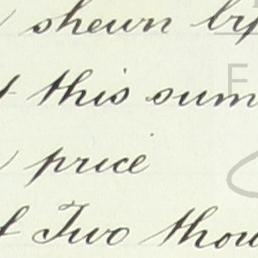 shewn by
this sum
price
Two thou